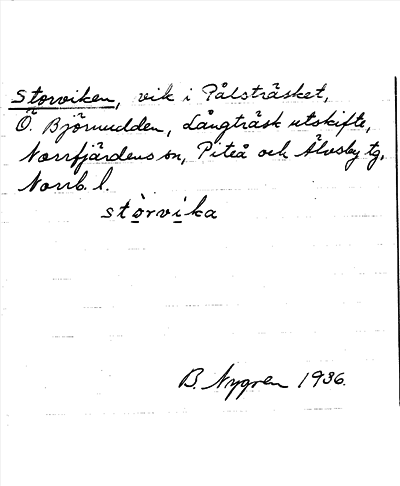 Storviken, vik i Pålsträsket,
Ö. Björnudden, Långträsk utskifte,
Norrfjärdens sn, Piteå och Älvsby tg,
Norrb. l.
stòrvika
B. Nygren 1936.